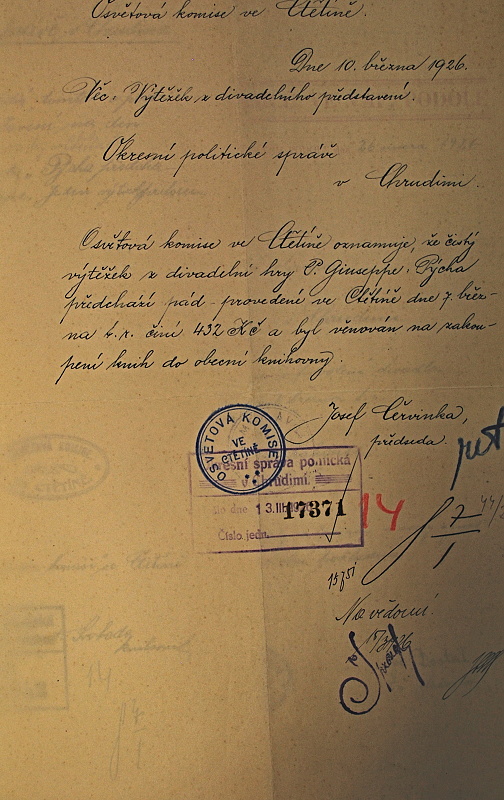 Osvětová komise ve Ctětíně.
Dne 10. března 1926.
Věc: Výtěžek z divadelního představení.
Okresní politické správě
v Chrudimi.
Osvětová komise ve Ctětíně oznamuje, že čistý
výtěžek z divadelní hry P. Giuseppe: Pýcha
předchází pád - provedené ve Ctětíně dne 7. břez-
na t. r. činí 432 Kč a byl věnován na zakou-
pení knih do obecní knihovny.
Josef Červinka,
předseda.
OSVĚTOVÁ KOMISE
VE
CTĚTÍNĚ
Okresní správa politická
v Chrudimi.
dne 13.III.1926 17371
Číslo jedn.
14
7
1
Na vědomí.